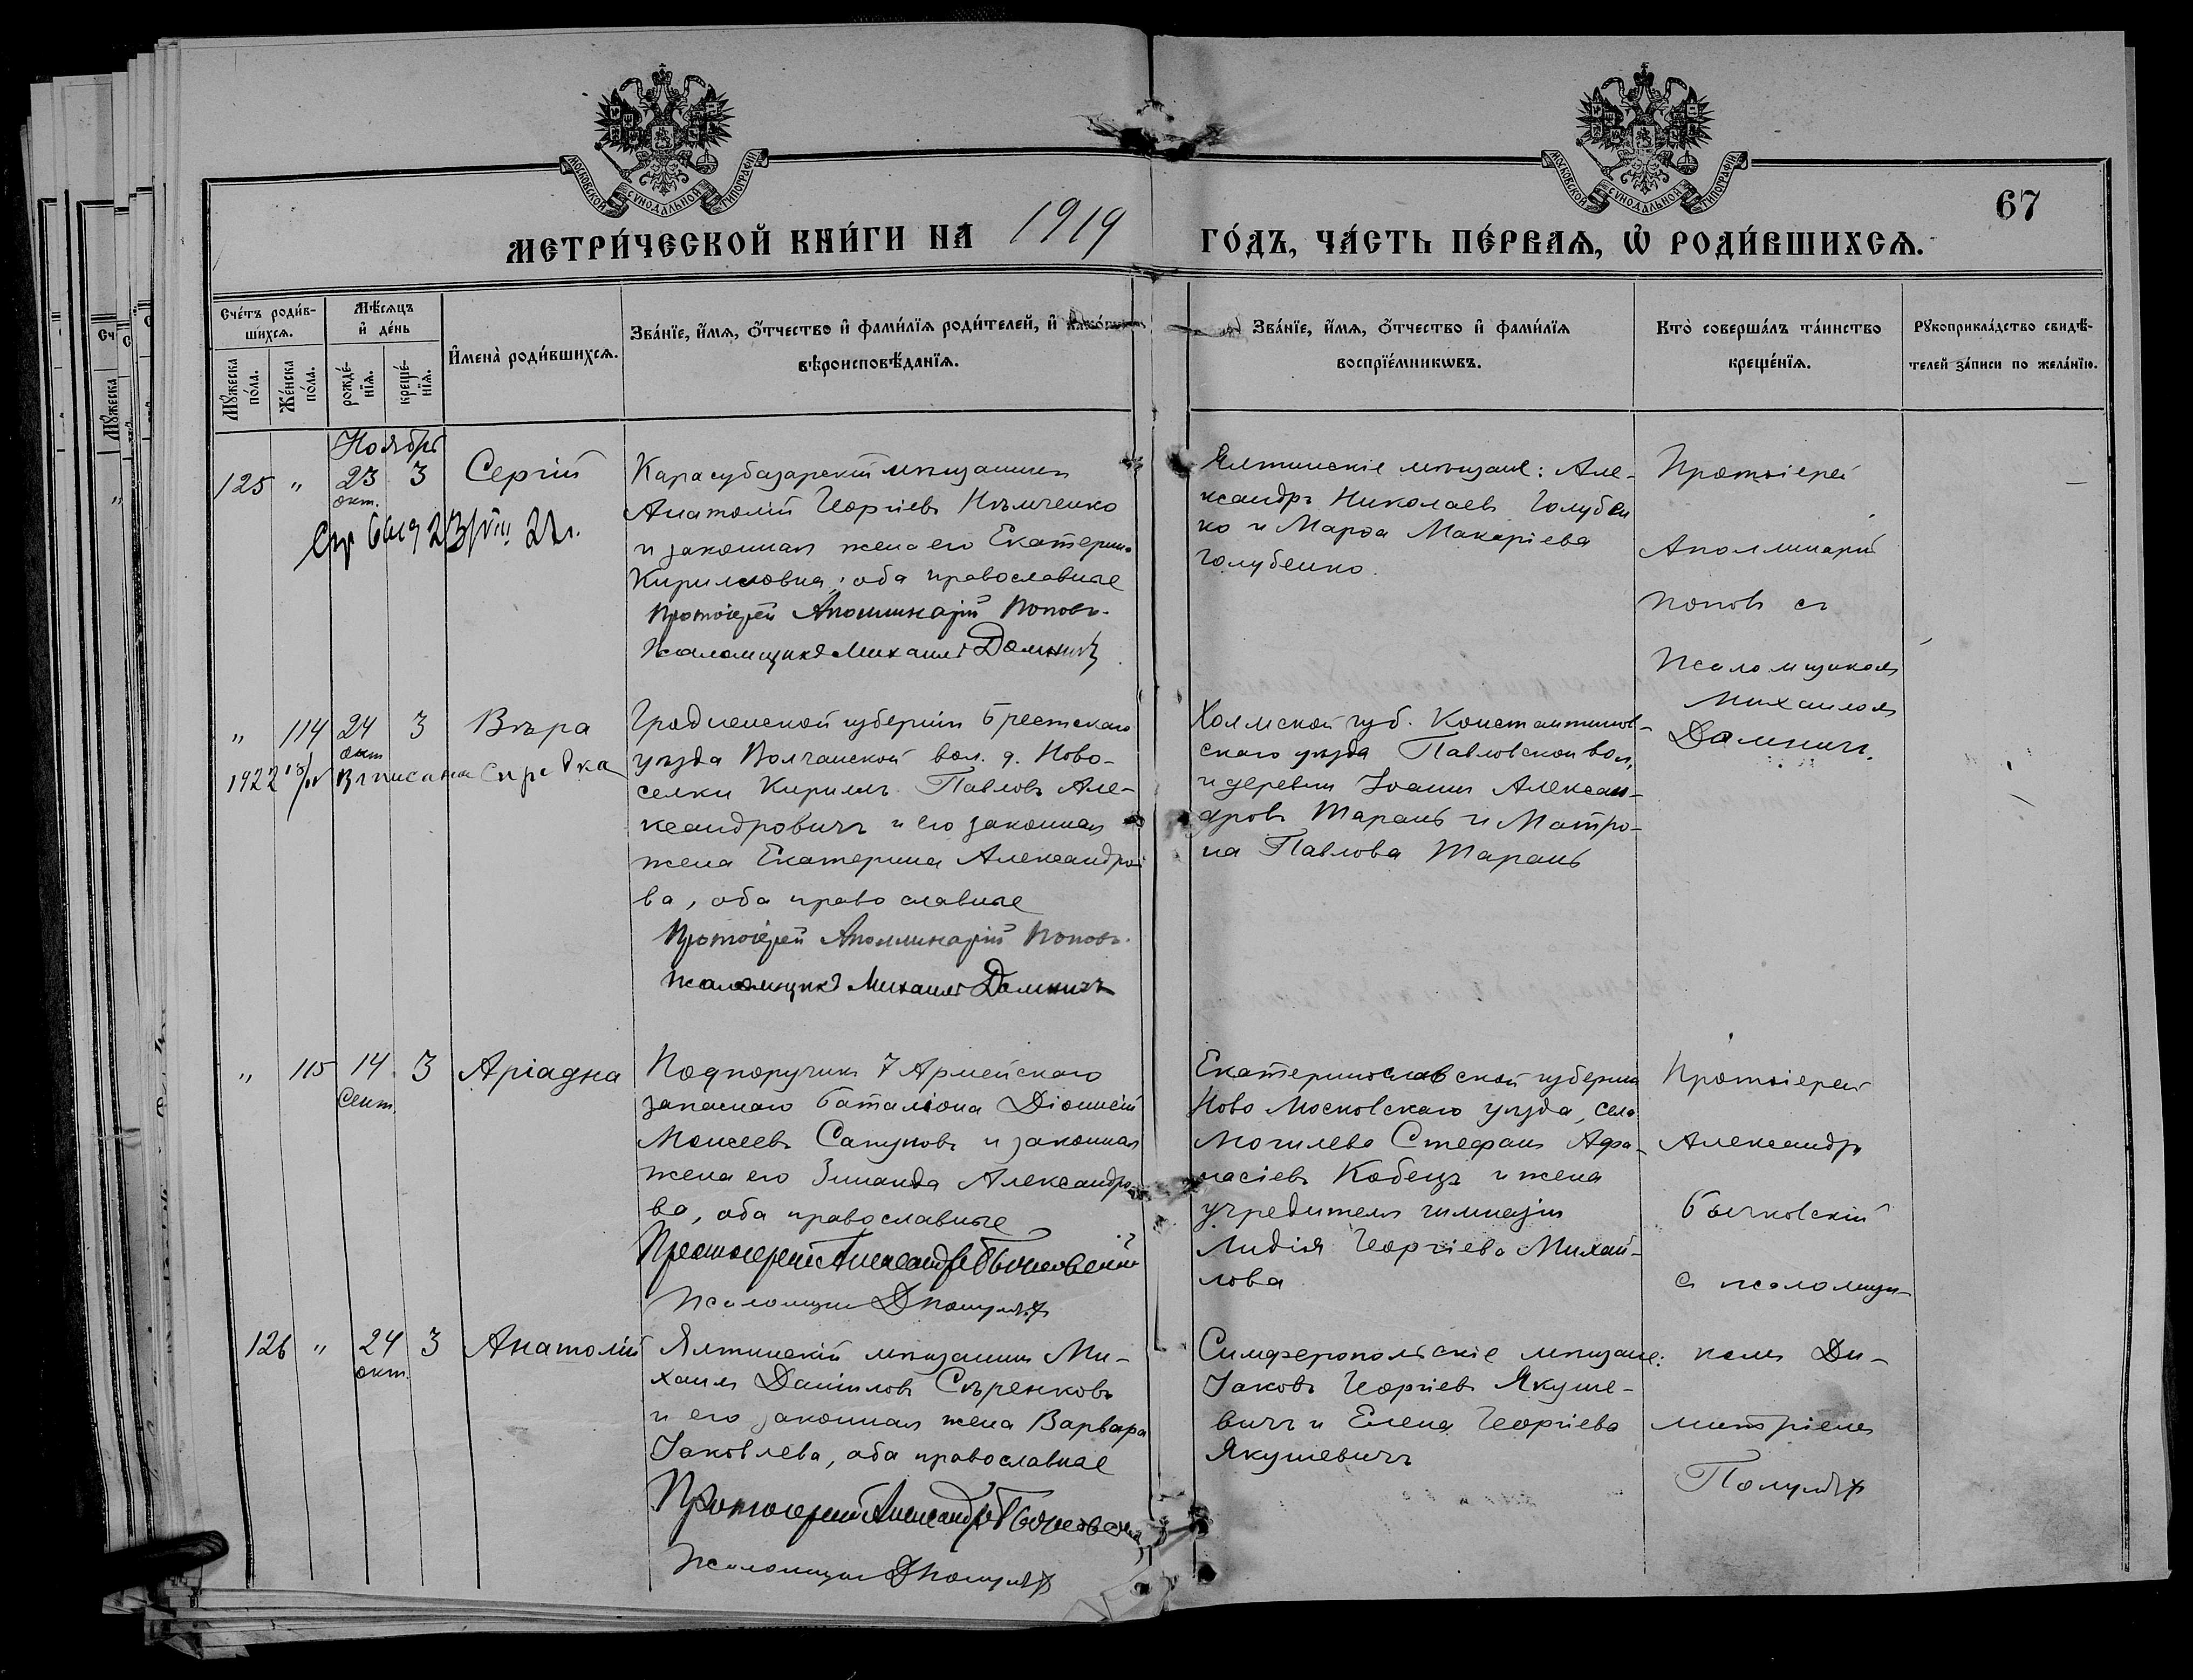 МОСКОВСКОЙ СУНОДАЛЬНОЙ ТИПОГРАФІИ
МОСКОВСКОЙ СУНОДАЛЬНОЙ ТИПОГРАФІИ
67
МЕТРИ́ЧЕСКОЙ КНИ́ГИ НА 1919 ГО́ДЪ, ЧА́СТЬ ПЕ́РВАѦ, Ѽ РОДИ́ВШИХСѦ.
Сче́тъ роди́в-
шихсѧ.
Мꙋ́жеска
по́ла.
Же́нска
по́ла.
Мѣ́сѧцъ
и҆ де́нь
рожде́-
нїѧ.
креще́-
нїѧ.
И҆мена̀ роди́вшихсѧ.
Зва́нїе, и҆́мѧ, ѻ҆́тчество и҆ фами́лїѧ роди́телей, и҆
вѣроисповѣ́данїѧ.
Зва́нїе, и҆́мѧ, ѻ҆́тчество и҆ фами́лїѧ
воспрїе́мникѡвъ.
Кто̀ соверша́лъ та́инство
креще́нїѧ.
Рꙋкоприкла́дство свидѣ́-
телей за́писи по жела́нїю.
Ноябрь
125 " 23 3 Сергій
окт.
Карасубазарскій мѣщанинъ
Анатолій Георгіевъ Нѣмченко
и законная жена его Екатерина
Кирилловна, оба православные
Протоіерей Аполлинарій Поповъ.
Псаломщикъ Михаилъ Домничъ
Ялтинскіе мѣщане: Але-
ксандръ Николаевъ Голубен
ко и Марѳа Макаріева
Голубенко.
Протоіерей
Аполлинарій
Поповъ съ
Псаломщикомъ
Михаиломъ
Домничъ.
" 114 24 3 Вѣра
окт
1922 Выписана
Гродненской губерніи Брестскаго
уѣзда Волчанской вол. д. Ново-
селки Кириллъ Павловъ Але-
ксандровичъ и его законная
жена Екатерина Александро
ва, оба православные
Протоіерей Аполлинарій Поповъ.
Псаломщикъ Михаилъ Домничъ
Холмской губ. Константинов-
скаго уѣзда Павловской вол.
и деревни Іоаннъ Алексан-
дровъ Тарань и Матро-
на Павлова Тарань
" 115 14 3 Аріадна
Сент.
Подпоручикъ 7 Армейскаго
запаснаго баталіона Діонисій
Моисеевъ Сапуновъ и законная
жена его Зинаида Александро
ва, оба православные
Протоіерей Александръ Бычковскій
Псаломщикъ
Екатеринославской губерніи
Ново Московскаго уѣзда, села
Могилева Стефанъ Афа-
насіевъ Кобецъ и жена
учредителя гимназіи
Лидія Георгіева Михай-
лова
Протоіерей
Александръ
Бычковскій
съ псаломщи-
комъ Ди-
митріемъ
126 " 24 3 Анатолій
окт.
Ялтинскій мѣщанинъ Ми-
хаилъ Даніиловъ Сѣренковъ
и его законная жена Варвара
Іаковлева, оба православные
Протоіерей Александръ Бычковскій
Псаломщикъ
Симферопольскіе мѣщане:
Іаковъ Георгіевъ Якуше-
вичъ и Елена Георгіева
Якушевичъ